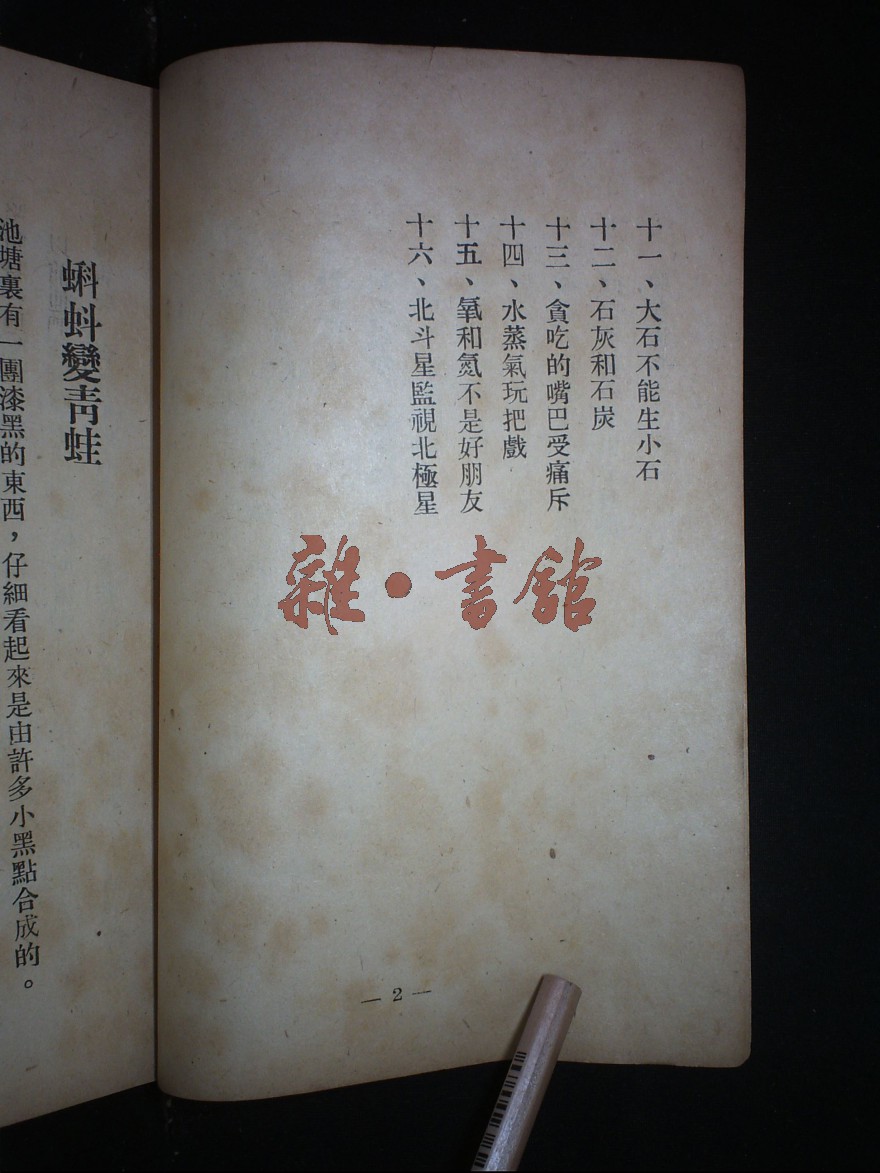 十一、大石不能生小石
十二、石灰和石炭
十三、貪吃的嘴巴受痛斥
十四、水蒸氣玩把戲
十五、氧和氮不是好朋友
十六、北斗星監視北極星
— 2 —
蝌蚪變靑蛙
池塘裏有一團漆黑的東西，仔細看起來是由許多小黑點合成的。
雜•書館